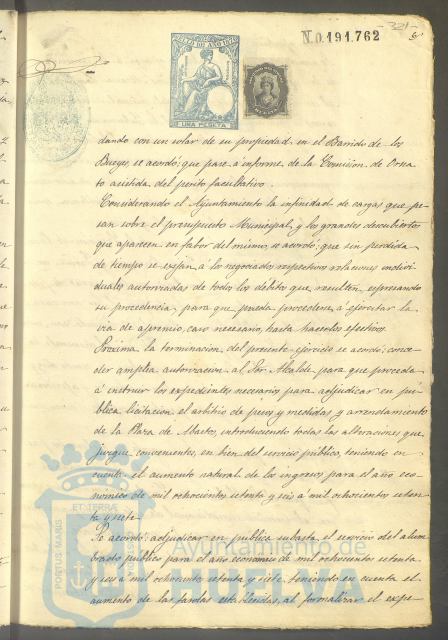 321
6
N. 0.191.762
SELLO 11º AÑO 1876
UNA PESETA
dando con un solar de su propiedad en el Barrido de los
Bueyes, se acordó, que pase a informe de la Comision de Orna
to asistida del perito facultativo.
Considerando el Ayuntamiento la infinidad de cargas que pe
san sobre el presupuesto Municipal, y los grandes descubiertos
que aparecen en fabor del mismo, se acordó; que sin perdida
de tiempo se exijan á los negociados respectivos relaciones indivi
duales autorizadas de todos los débitos que resulten expresando
su procedencia, para que pueda procederse á ejercitar la
via de apremio, caso necesario, hasta hacerlos efectivos.
Proxima la terminacion del presente ejercicio se acordó; conce
der amplia autorizacion al Sor. Alcalde para que proceda
á instruir los expedientes necesarios para adjudicar en pú
blica licitacion el arbitrio de pesos y medidas y arrendamiento
de la Plaza de Abastos, introduciendo todas las alteraciones que
juzgue convenientes, en bien del servicio público, teniendo en
cuenta el aumento natural de los ingresos para el año eco
nómico de mil ochocientos setenta y seis á mil ochocientos seten
ta y siete.
Se acordó: adjudicar en publica subasta el servicio del alum
brado público para el año economico de mil ochocientos setenta
y seis á mil ochocientos setenta y siete, teniendo en cuenta el
aumento de las farolas establecidas, al formalizar el expe-
PORTUS MARIS
ET TERRÆ
Ayuntamiento de